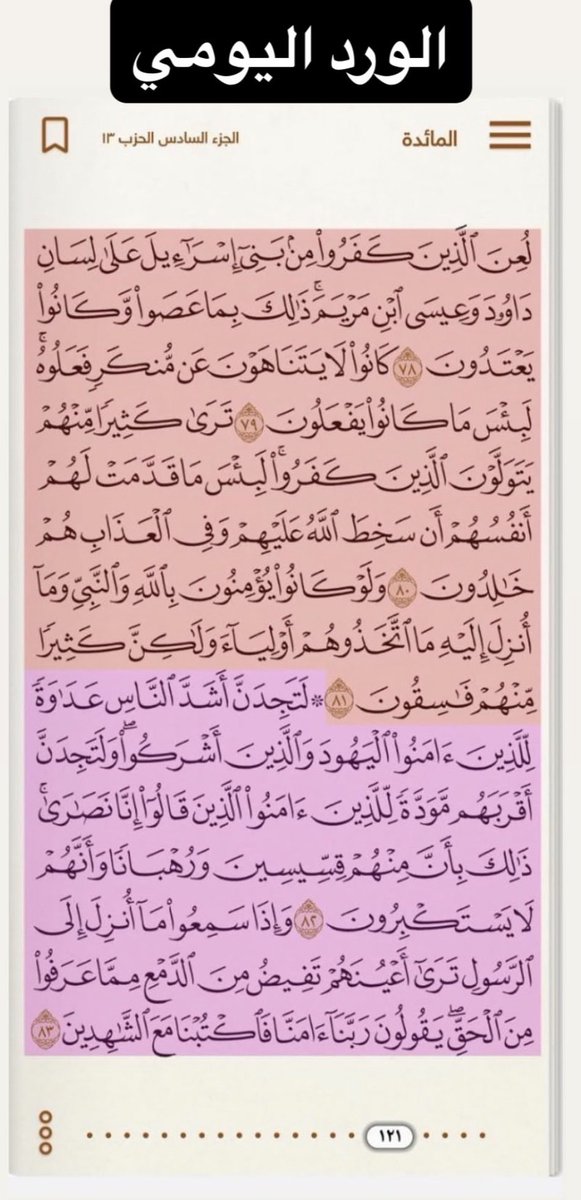 الورد اليومي
المائدة
الجزء السادس الحزب ١٣
لُعِنَ ٱلَّذِينَ كَفَرُوا۟ مِنۢ بَنِىٓ إِسْرَٰٓءِيلَ عَلَىٰ لِسَانِ
دَاوُۥدَ وَعِيسَى ٱبْنِ مَرْيَمَ ۚ ذَٰلِكَ بِمَا عَصَوا۟ وَّكَانُوا۟
يَعْتَدُونَ ٧٨ كَانُوا۟ لَا يَتَنَاهَوْنَ عَن مُّنكَرٍ فَعَلُوهُ ۚ
لَبِئْسَ مَا كَانُوا۟ يَفْعَلُونَ ٧٩ تَرَىٰ كَثِيرًا مِّنْهُمْ
يَتَوَلَّوْنَ ٱلَّذِينَ كَفَرُوا۟ ۚ لَبِئْسَ مَا قَدَّمَتْ لَهُمْ
أَنفُسُهُمْ أَن سَخِطَ ٱللَّهُ عَلَيْهِمْ وَفِى ٱلْعَذَابِ هُمْ
خَٰلِدُونَ ٨٠ وَلَوْ كَانُوا۟ يُؤْمِنُونَ بِٱللَّهِ وَٱلنَّبِىِّ وَمَآ
أُنزِلَ إِلَيْهِ مَا ٱتَّخَذُوهُمْ أَوْلِيَآءَ وَلَٰكِنَّ كَثِيرًا
مِّنْهُمْ فَٰسِقُونَ ٨١ ۞ لَتَجِدَنَّ أَشَدَّ ٱلنَّاسِ عَدَٰوَةً
لِّلَّذِينَ ءَامَنُوا۟ ٱلْيَهُودَ وَٱلَّذِينَ أَشْرَكُوا۟ ۖ وَلَتَجِدَنَّ
أَقْرَبَهُم مَّوَدَّةً لِّلَّذِينَ ءَامَنُوا۟ ٱلَّذِينَ قَالُوٓا۟ إِنَّا نَصَٰرَىٰ ۚ
ذَٰلِكَ بِأَنَّ مِنْهُمْ قِسِّيسِينَ وَرُهْبَانًا وَأَنَّهُمْ
لَا يَسْتَكْبِرُونَ ٨٢ وَإِذَا سَمِعُوا۟ مَآ أُنزِلَ إِلَى
ٱلرَّسُولِ تَرَىٰٓ أَعْيُنَهُمْ تَفِيضُ مِنَ ٱلدَّمْعِ مِمَّا عَرَفُوا۟
مِنَ ٱلْحَقِّ ۖ يَقُولُونَ رَبَّنَآ ءَامَنَّا فَٱكْتُبْنَا مَعَ ٱلشَّٰهِدِينَ ٨٣
١٢١